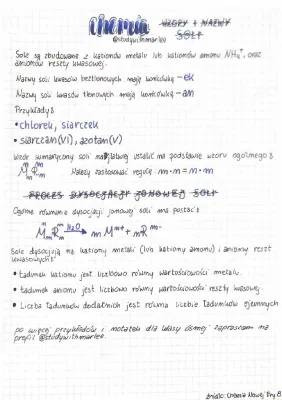 chemia WZORY I NAZWY
@studywithmarlee SOLI
Sole są zbudowane z kationów metalu lub kationów amonu NH₄⁺, oraz
anionów reszty kwasowej.
Nazwy soli kwasów beztlenowych mają końcówkę -ek
Nazwy soli kwasów tlenowych mają końcówkę -an
Przykłady:
• chlorek, siarczek
• siarczan(VI), azotan(V)
Wzór sumaryczny soli najłatwiej ustalić na podstawie wzoru ogólnego:
Należy zastosować regułę m·n = n·m
PROCES DYSOCJACJI JONOWEJ SOLI
Ogólne równanie dysocjacji jonowej soli ma postać:
Sole dysocjują na kationy metali (lub kationy amonu) i aniony reszt
kwasowych:
• Ładunek kationu jest liczbowo równy wartościowości metalu.
• Ładunek anionu jest liczbowo równy wartościowości reszty kwasowej.
• Liczba ładunków dodatnich jest równa liczbie ładunków ujemnych
po więcej przykładów i notatek dla klasy ósmej zapraszam na
profil @studywithmarlee
źródło: Chemia Nowej Ery 8